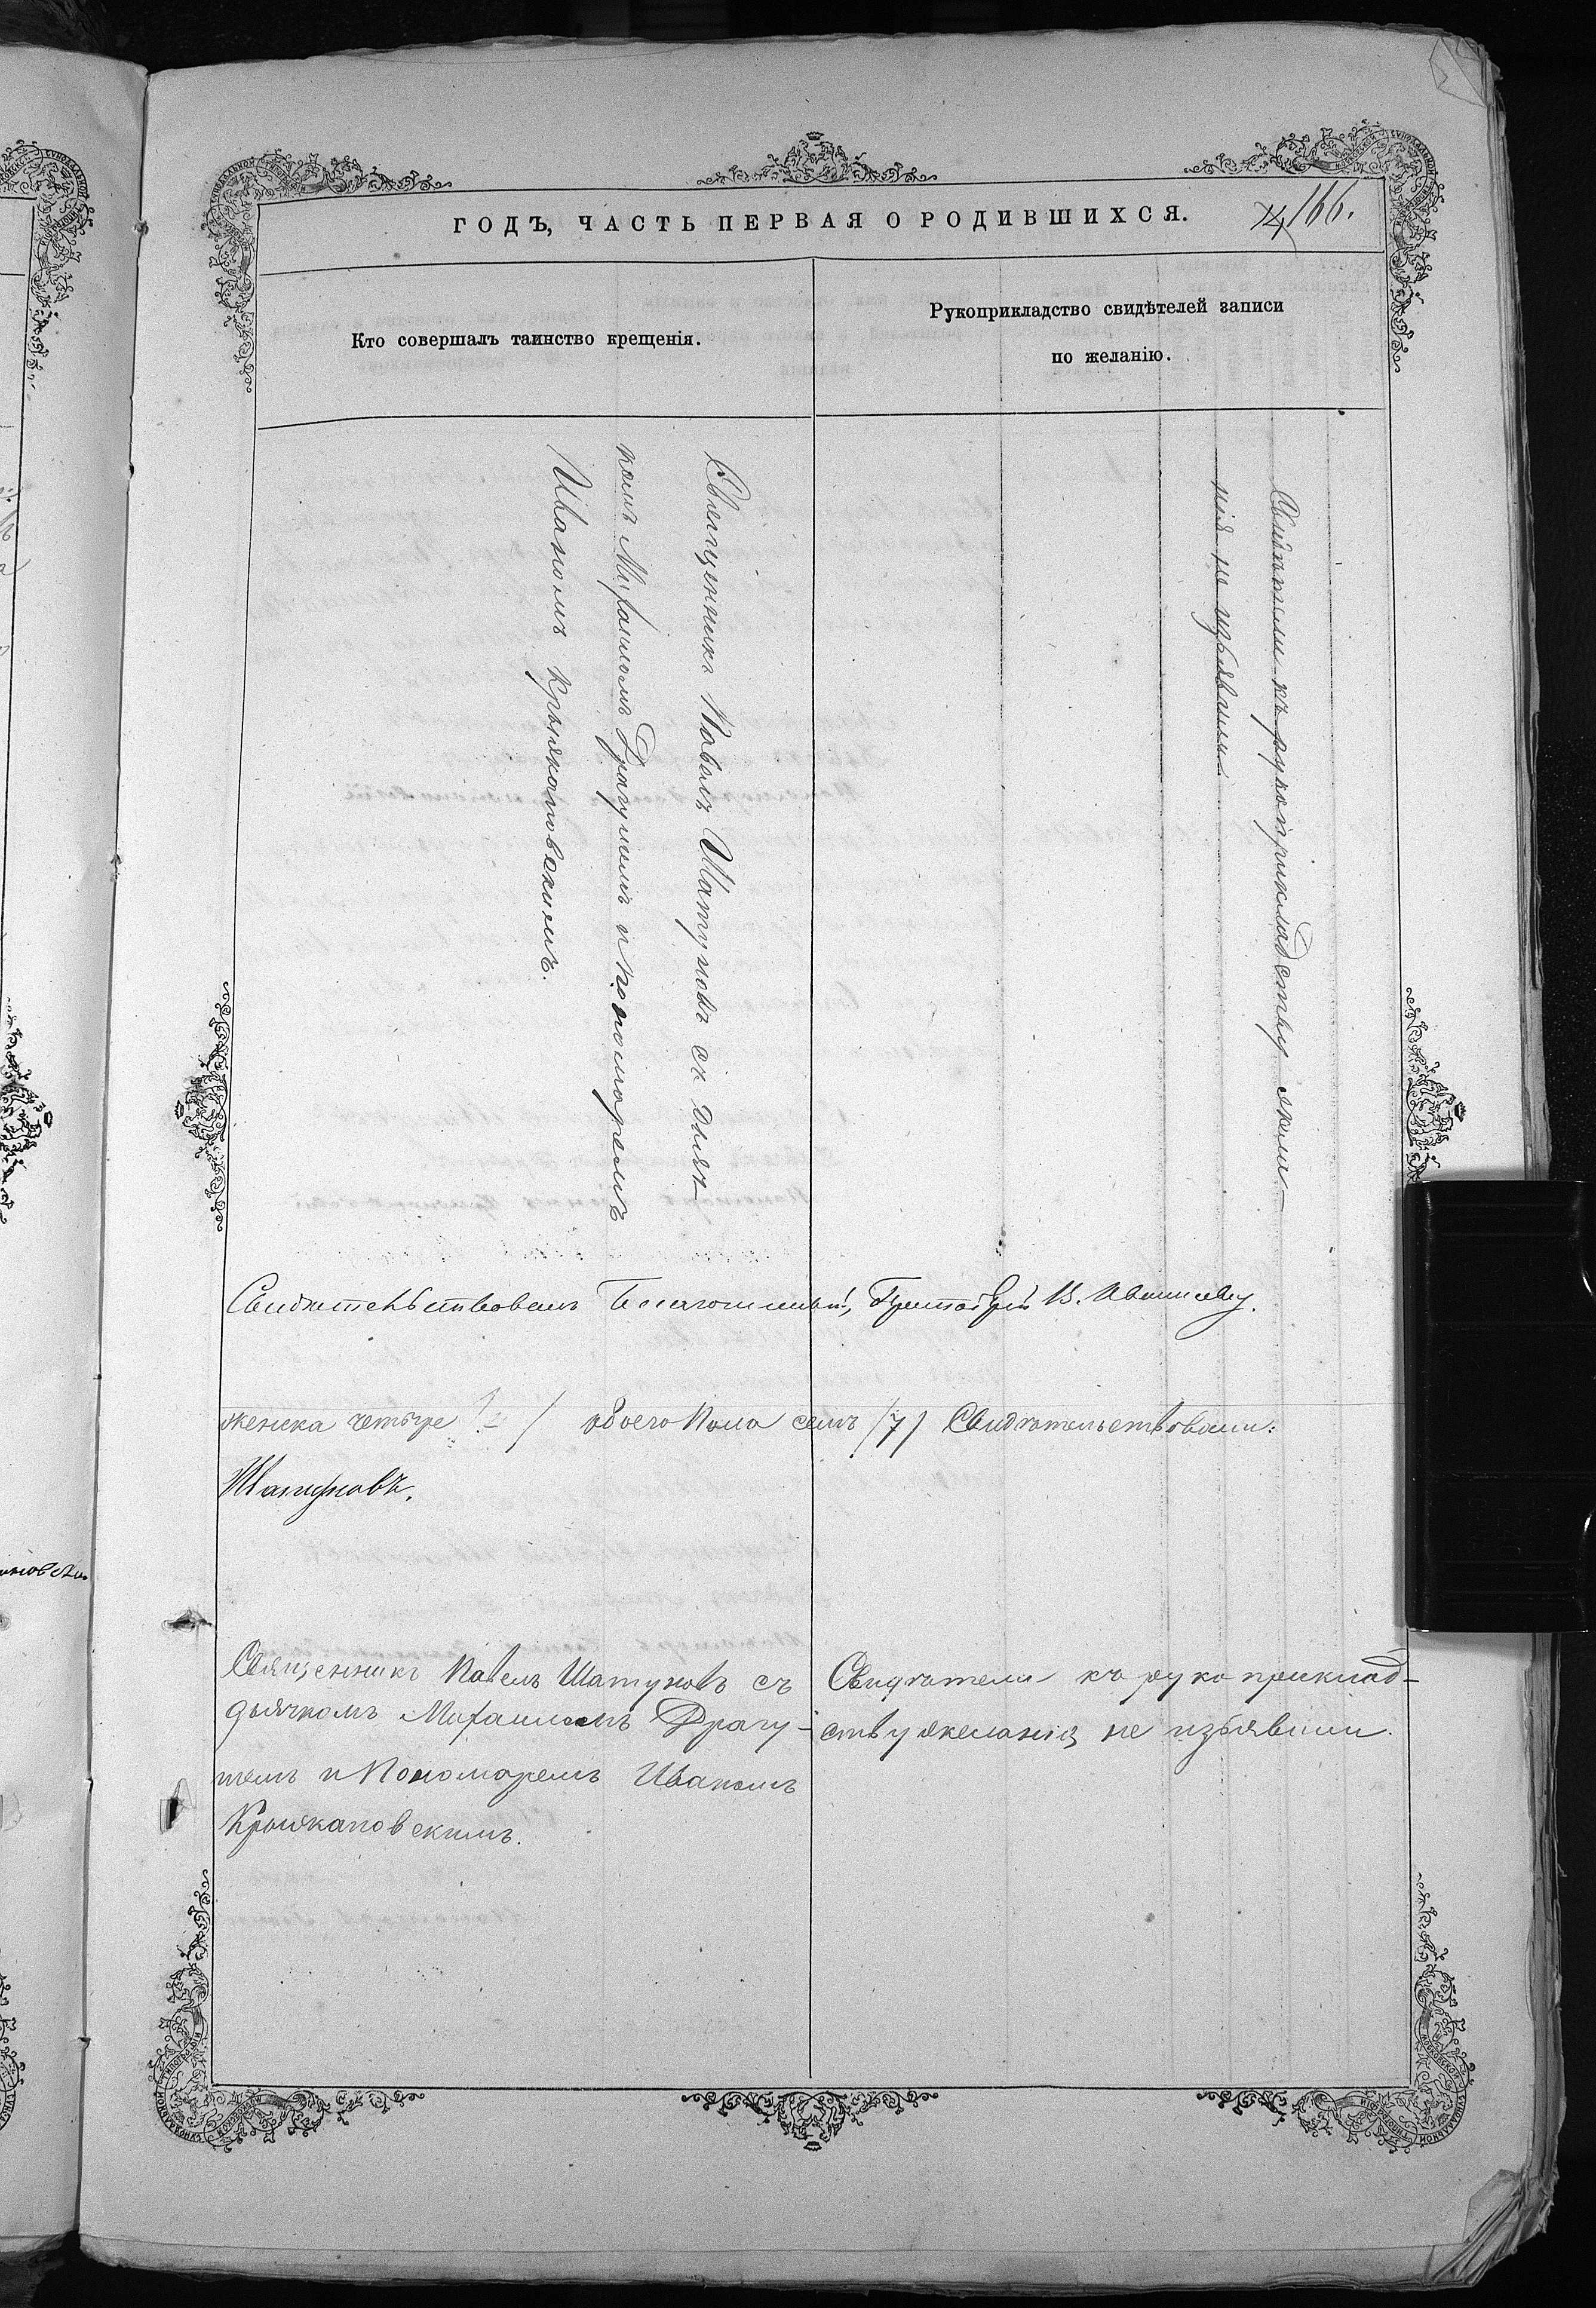 ГОДЪ, ЧАСТЬ ПЕРВАЯ О РОДИВШИХСЯ.
74 166.
Кто совершалъ таинство крещенія.
Рукоприкладство свидѣтелей записи
по желанію.
Священникъ Павелъ Шатуновъ съ дьяч-
комъ Михаиломъ Драгутемъ и Пономаремъ
Иваномъ Крыжановскимъ.
Свидѣтели къ рукоприкладству жела-
нія не изъявили
Свидѣтельствовалъ Благочинный,
женска четыре / обоего пола семь /7/ Свидѣтельствовали:
Шатуновъ.
Священникъ Павелъ Шатуновъ съ
дьячкомъ Михаиломъ Драгу-
темъ и Пономаремъ Иваномъ
Крыжановскимъ.
Свидѣтели къ рукоприклад-
ству желанія не изъявили.